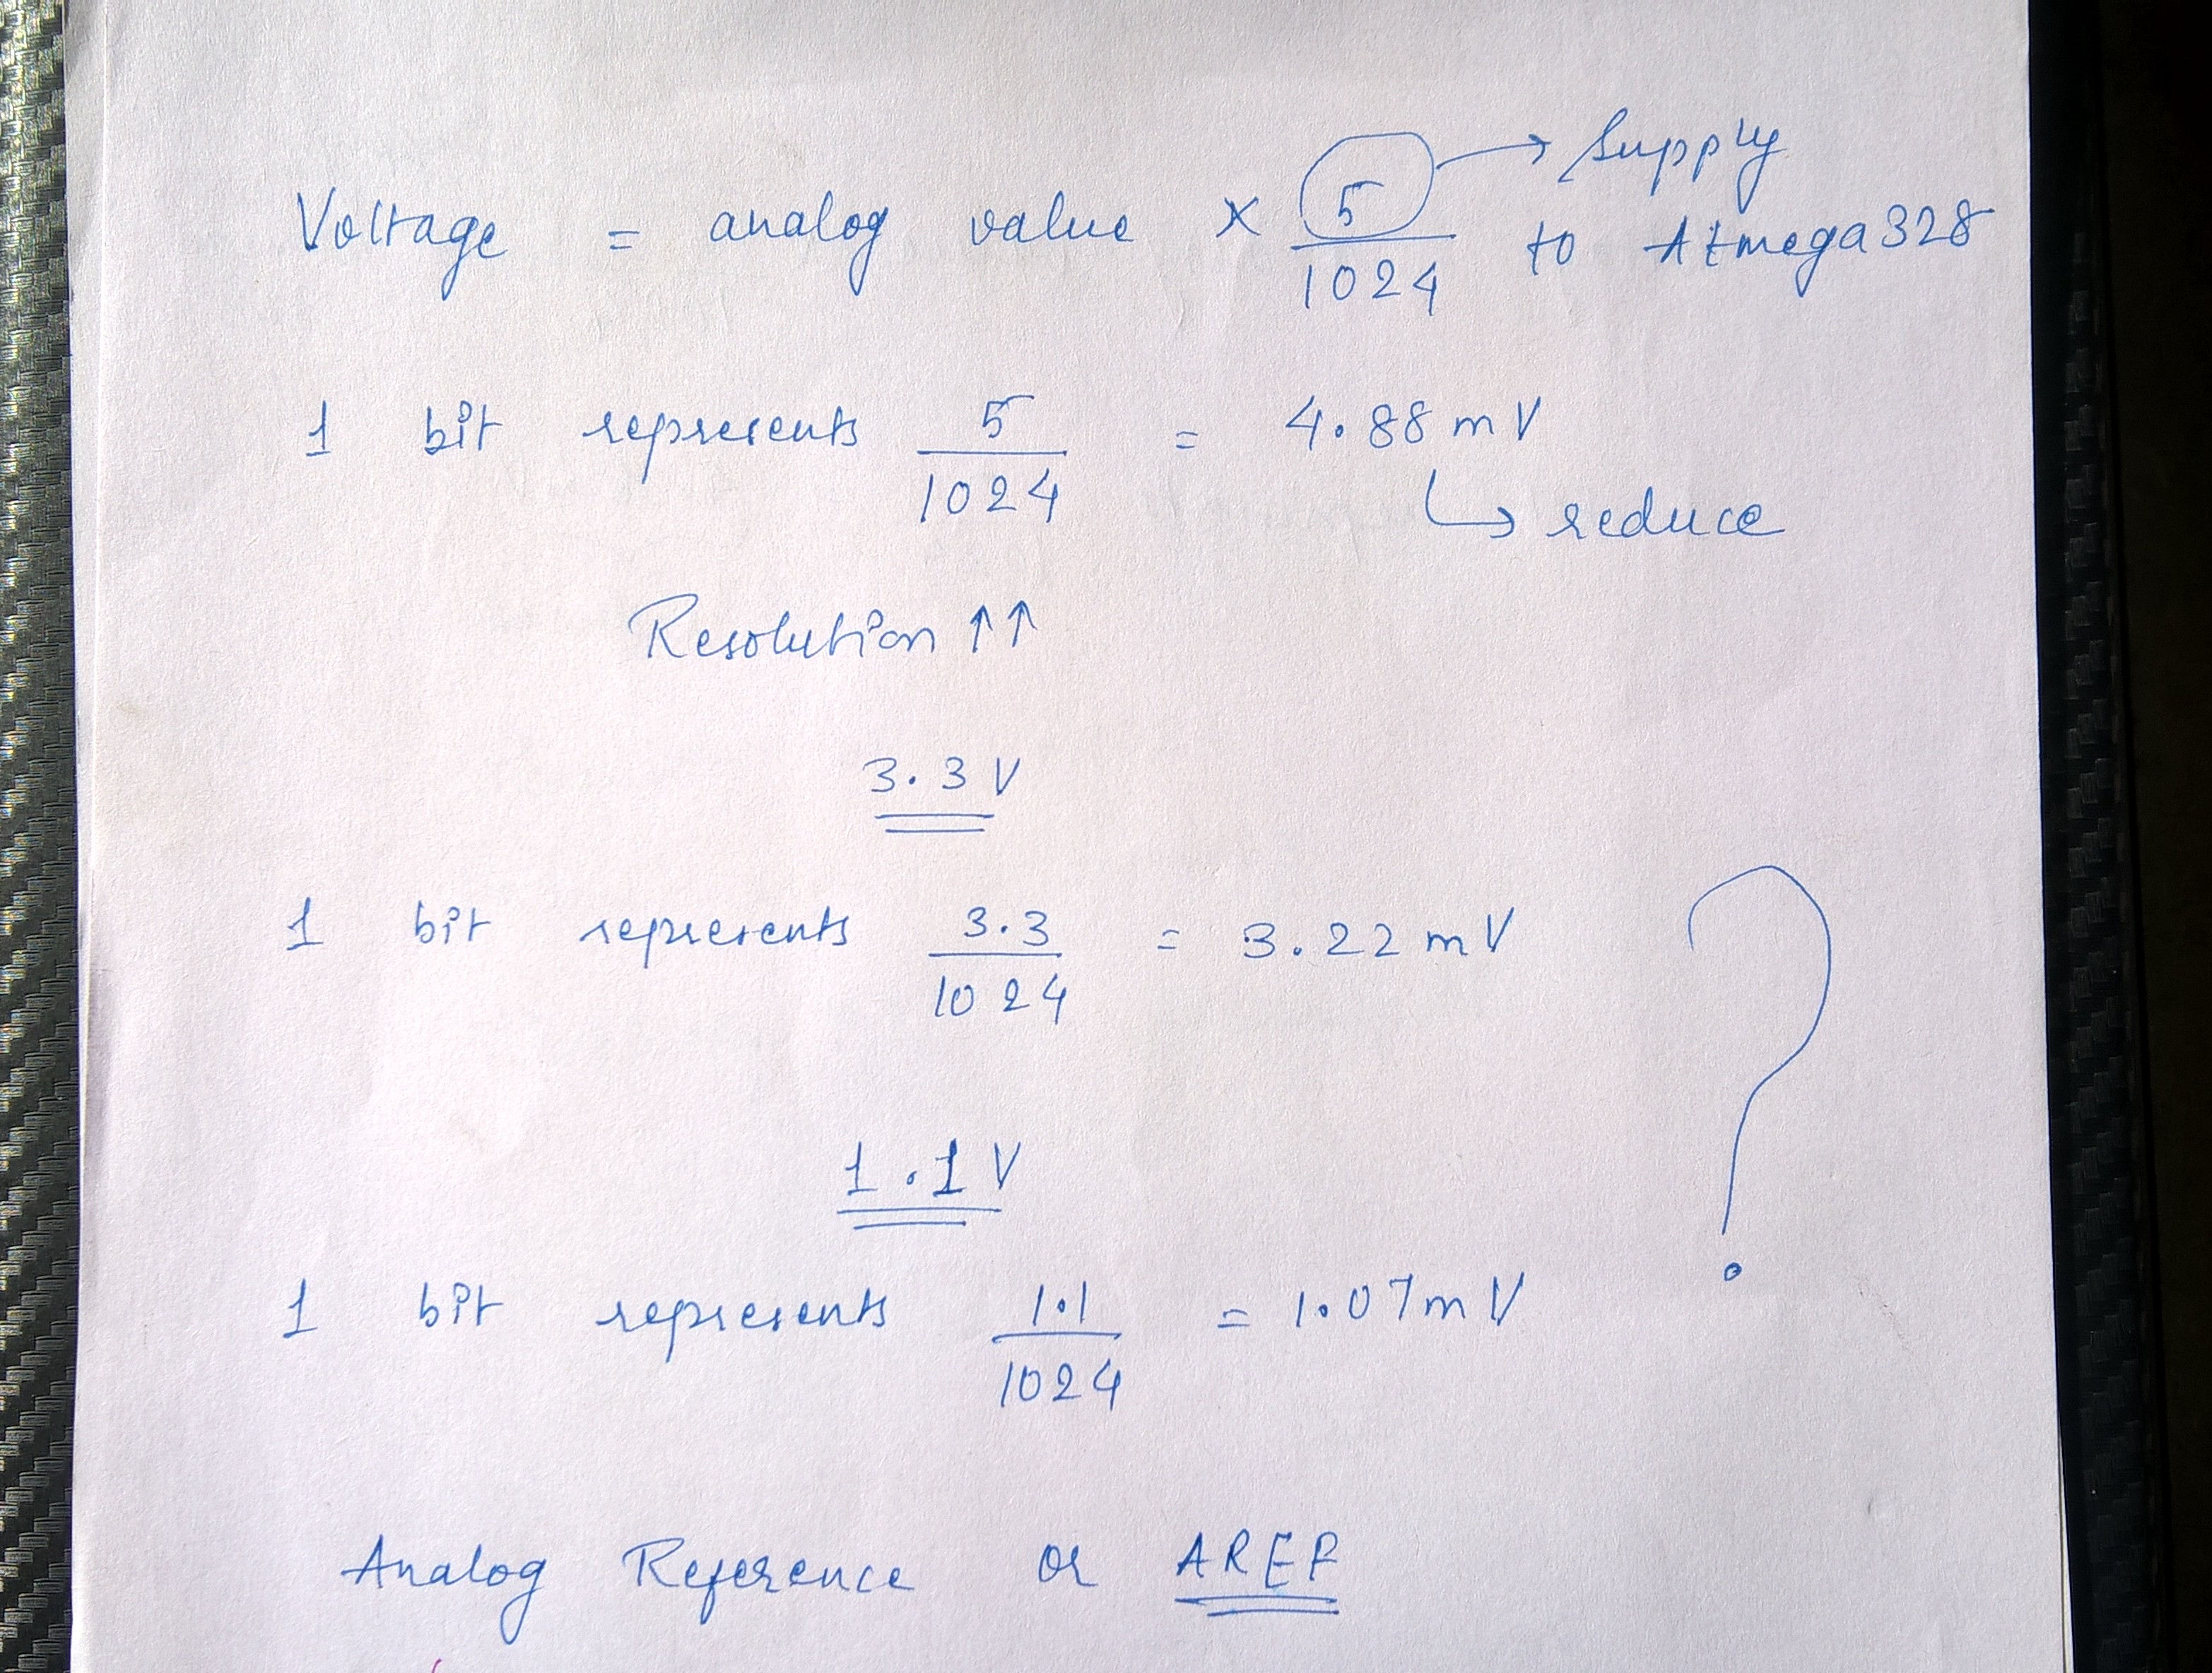 Voltage = analog value × 5/1024 → Supply to Atmega328
1 bit represents 5/1024 = 4.88 mV
↳ reduce
Resolution ↑↑
3.3 V
1 bit represents 3.3/1024 = 3.22 mV
?
1.1 V
1 bit represents 1.1/1024 = 1.07 mV
Analog Reference or AREF